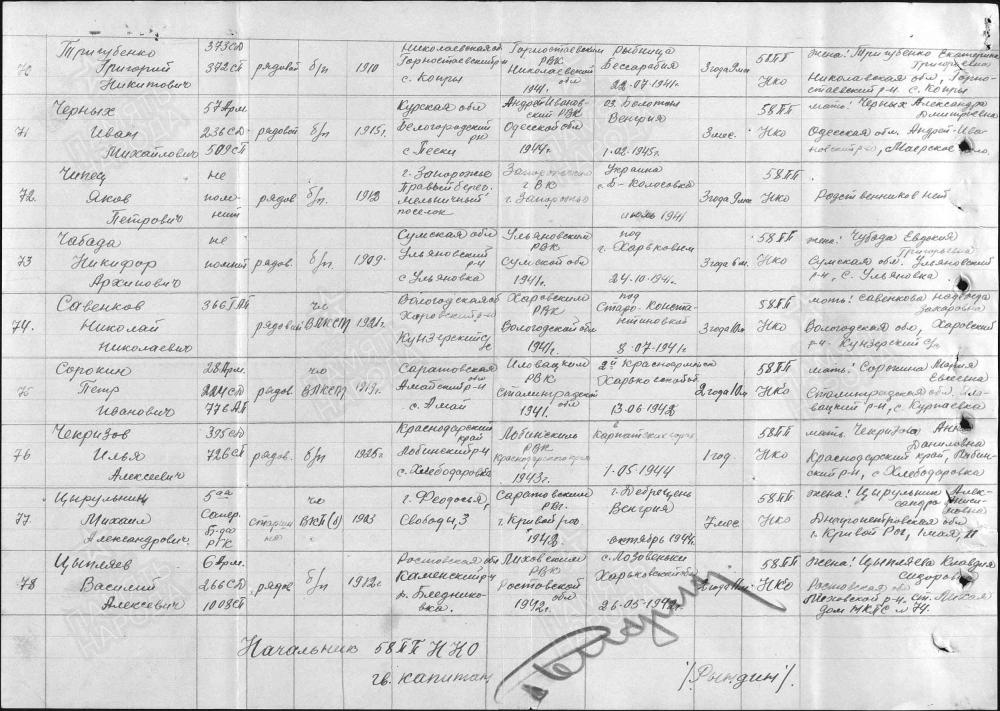 70 Тригубенко Григорий Никитович 373сд 372сп рядовой б/п 1910 Николаевская об Горностаевский р-н с. Копры Горностаевским РВК Николаевской обл 1941. Рыбница Бесарабия 22-07-1941г. 3 года 9 мес. 58ПП НКО жена: Тригубенко Екатерина Григорьевна Николавская обл, Горностаевский р-н. с. Копры
71 Черных Иван Михайлович 57 Арм. 236сд 509сп рядовой б/п 1915г. Курская обл Белогородский рн с Пески Андрей-Ивановский РВК Одесской обл 1944г. оз. Белотон Венгрия 1-02-1945г. 3 мес. 58ПП НКО мать: Черных Александра Дмитрьевна Одесская обл. Андрей-Ивановский р-н, Маерское
72. Чипец Яков Петрович не помнит рядов б/п. 1912 г. Запорожье Правый берег. Мельничный поселок Запорожским г ВК г. Запорожье Украина с. Б-Колосовка июль 1941 3 года 9 мес 58ПП НКО Родственников нет
73 Чабада Никифор Архипович не помнит рядов. б/п. 1909- Сумская обл Ульяновский р-н с Ульяновка Ульяновский РВК Сумской обл 1941г. под г. Харьковым 24-10-1941г. 3 года 6 м. 58ПП НКО жена: Чубада Евдокия Григорьевна Сумская обл. Ульяновский р-н, с. Ульяновка
74. Савенков Николай Николаевич 366 ГАП рядовой чл ВЛКСМ 1921г. Вологодская об Харовский р-н Кунзерский с/с Харовским РВК Вологодской обл 1941г. под Старо-Константиновкой 8-07-1941г 3 года 10 м 58ПП НКО мать: Савенкова Надежда Захаровна Вологодская обл, Харовский р-н. Кунзерский с/с
75 Сорокин Петр Иванович 28 Арм. 224сд 776 АП рядов. чл ВЛКСМ 1919г. Саратовская обл Амайский р-н с. Амай Иловацким РВК Сталинградской обл 1941. 2й Красноармейск Харьковской об 13-06-1942 2 года 10 м 58ПП НКО мать: Сорокина Мария Сталинградская обл. Иловацкий р-н, с. Курпаевка
76 Чекризов Илья Алексеевич 395сд 726сп рядов. б/п 1925г. Краснодарский край Лобинский р-н с. Хлебодаровка Лобинским РВК Краснодарского края 1943г. в Карпатских горах 1-05-1944 1 год. 58ПП НКО мать: Чекризова Анна Даниловна Краснодарский край, Лабинский р-н, с Хлебодаровка
77. Цырульник Михаил Александрович. 5ая Сапер. Б-да РГК Старшина чл ВКП(б) 1903 г. Феодосья, Свободы, 3 Саратовским РВК. г. Кривой рог 1942 г. Дебрецень Венгрия октябрь 1944г. 7 мес. 58ПП НКО жена: Цырульник Александра Днепропетровская обл г. Кривой Рог, 1 мая, 11
78. Цыпляев Василий Алексевич 6 Арм. 266сд 1008сп рядов б/п 1912г Ростовская обл Каменский р-н Лиховским РВК Ростовской обл 1942г. с. Лозовеньки Харьковской об 26-05-1942г 58ПП НКО жена: Цыпляева Клавдия Сидоровна Ростовская обл Лиховской р-н. ст. Лихая дом НКПС №74.
Начальник 58ПП НКО
гв. капитан /Рындин/.